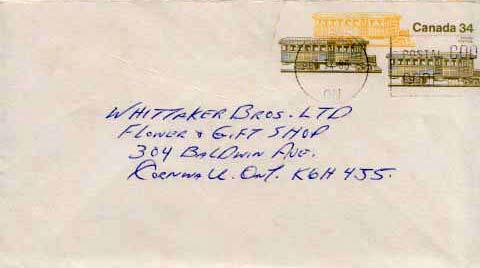 Canada 34
POSTAL COD
ON
WHITTAKER BROS. LTD
FLOWER & GIFT SHOP
304 BALDWIN AVE.
CORNWALL. ONT. K6H 4J5.